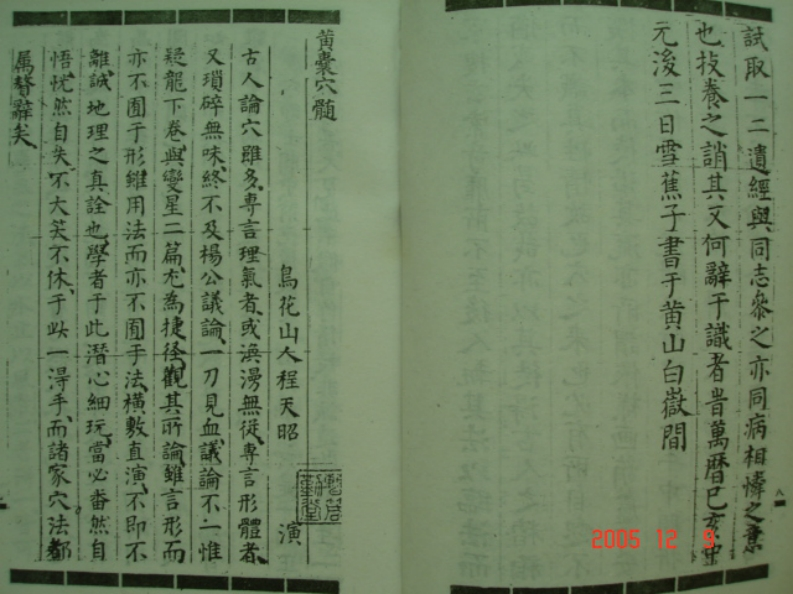 試取一二遺經與同志參之亦同病相憐之意
也技養之誚其又何辭于識者旹萬曆己亥
元浚三日雪蕉子書于黄山白嶽間
黄囊穴髓
鳥花山人程天昭 演
古人論穴雖多專言理氣者或渙漫無從專言形體者
又瑣碎無味終不及楊公議論一刀見血議論不一惟
疑龍下卷與變星二篇尤為捷径觀其所論雖言形而
亦不囿于形雖用法而亦不囿于法横敷直演不即不
離誠地理之真詮也學者于此潛心細玩當必畨然自
悟恍然自失不大笑不休于此一淂手而諸家穴法都
属贅辭矣
2005 12 9